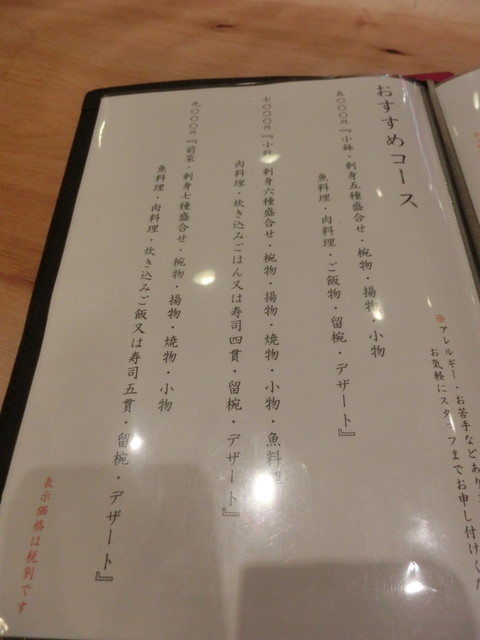 おすすめコース
五〇〇〇円『小鉢・刺身五種盛合せ・椀物・揚物・小物
魚料理・肉料理・ご飯物・留椀・デザート』
七〇〇〇円『小鉢・刺身六種盛合せ・椀物・揚物・焼物・小物・魚料理
肉料理・炊き込みごはん又は寿司四貫・留椀・デザート』
九〇〇〇円『前菜・刺身七種盛合せ・椀物・揚物・焼物・小物
魚料理・肉料理・炊き込みご飯又は寿司五貫・留椀・デザート』
表示価格は税別です
※アレルギー・お苦手などあり
お気軽にスタッフまでお申し付けくだ